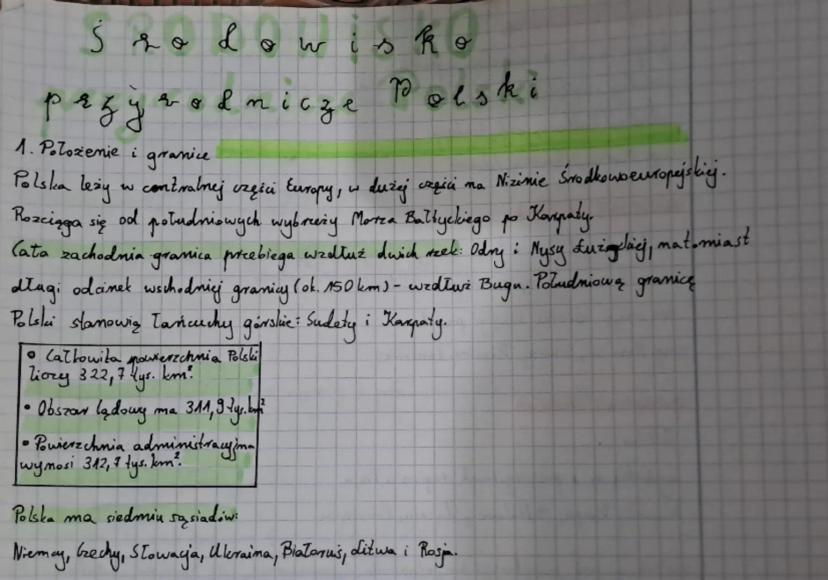 Środowisko
przyrodnicze Polski
1. Położenie i granice
Polska leży w centralnej części Europy, w dużej części na Nizinie Środkowoeuropejskiej.
Rozciąga się od południowych wybrzeży Morza Bałtyckiego po Karpaty.
Cała zachodnia granica przebiega wzdłuż dwich rzek: Odry i Nysy Łużyckiej, natomiast
długi odcinek wschodniej granicy (ok. 150 km) - wzdłuż Bugu. Południową granicę
Polski stanowią łańcuchy górskie: Sudety i Karpaty.
• Całkowita powierzchnia Polski
liczy 322,7 tys. km².
• Obszar lądowy ma 311,9 tys. km²
• Powierzchnia administracyjna
wynosi 312,7 tys. km².
Polska ma siedmiu sąsiadów:
Niemcy, Czechy, Słowacja, Ukraina, Białoruś, Litwa i Rosja.